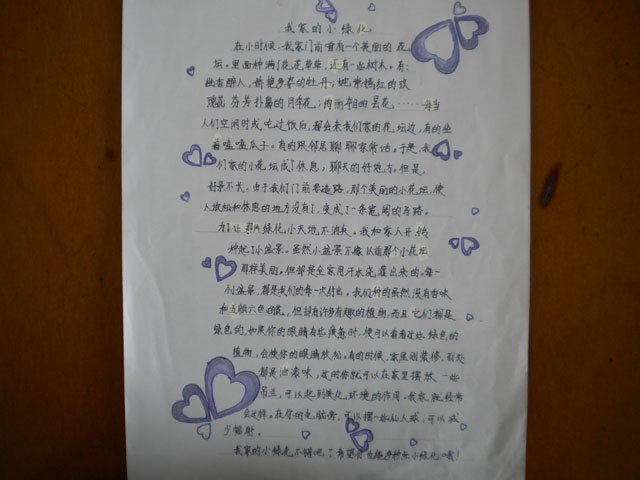 我家的小绿化
在小时候,我家门前曾有一个美丽的花
坛。里面种满了花花草草,还有一些树木。有:
幽香醉人,娇艳多姿的牡丹;姹紫嫣红的玫
瑰花 芬芳扑鼻的月季花;绚丽夺目的昙花………每当
人们空闲时或吃过饭后,都会来我们家的花坛边,有的坐
着嗑嗑瓜子。有的跟邻居聊聊家常话。于是,我
们家的小花坛成了休息,聊天的好地方。但是,
好景不长。由于我们门前要造路,那个美丽的小花坛,使
人放松和休息的地方没有了,变成了一条宽阔的马路。
为了让那片绿化小天地不消失。我和家人开始
种起了小盆景。虽然小盆景不像以前那个小花坛
那样美丽。但却是全家用汗水浇灌出来的。每一
个盆景,都是我们的每一次付出。我们种的虽然没有香味
和五颜六色的花,但却有许多有趣的植物,而且它们都是
绿色的,如果你的眼睛有些疲备时,便可以看看这些绿色的
植物,会使你的眼睛放松。有的时候,家里刚装修,到处
都是油漆味,这时你就可以在家里摆放一些
吊兰,可以起到美化环境的作用。我家就经常
会这样。在你的电脑旁,可以摆一些仙人球,可以减
少辐射。
我家的小绿化不错吧?希望你也能多种点小绿化哦!